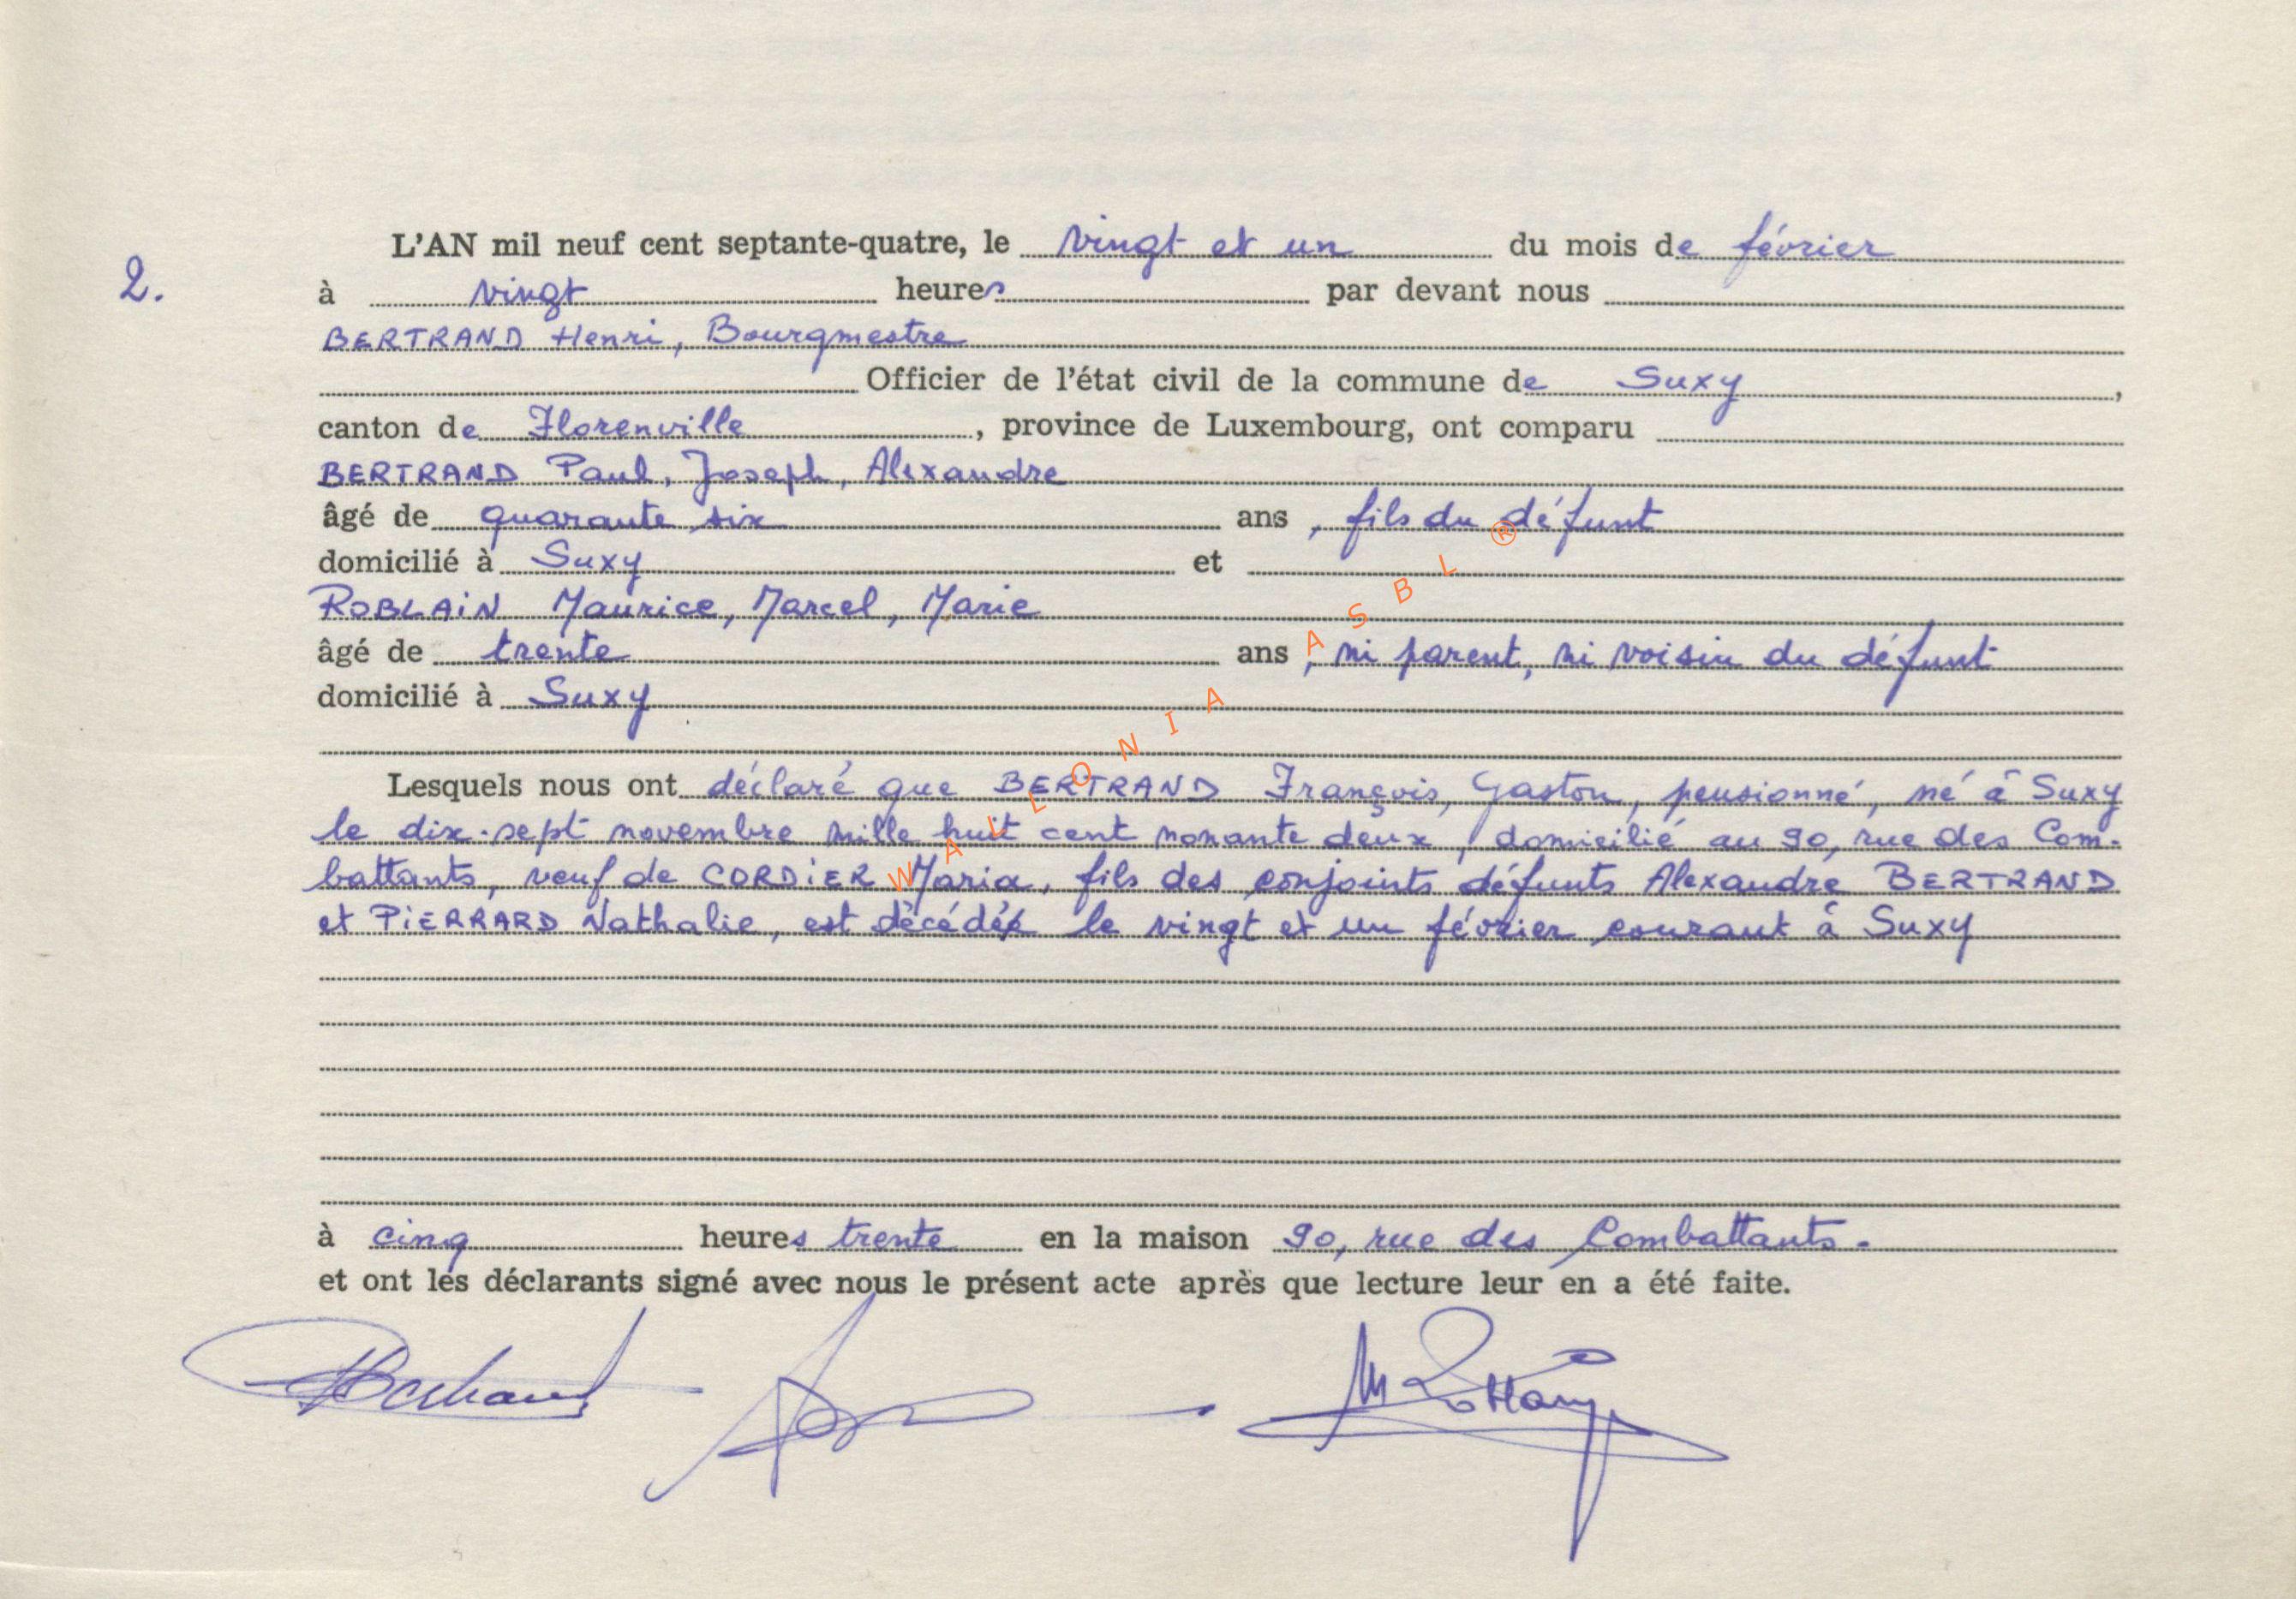 2.
L'AN mil neuf cent septante-quatre, le vingt et un du mois de février
à vingt heures par devant nous
BERTRAND Henri, Bourgmestre
Officier de l'état civil de la commune de Suxy,
canton de Florenville, province de Luxembourg, ont comparu
BERTRAND Paul, Joseph, Alexandre
âgé de quarante six ans, fils du défunt
domicilié à Suxy et
ROBLAIN Maurice, Marcel, Marie
âgé de trente ans, ni parent, ni voisin du défunt
domicilié à Suxy
Lesquels nous ont déclaré que BERTRAND François, Gaston, pensionné, né à Suxy
le dix-sept novembre mille huit cent nonante deux, domicilié au 90, rue des Com-
battants, veuf de CORDIER Maria, fils des conjoints défunts Alexandre BERTRAND
et PIERRARD Nathalie, est décédé le vingt et un février courant à Suxy
à cinq heures trente en la maison 90, rue des Combattants.
et ont les déclarants signé avec nous le présent acte après que lecture leur en a été faite.
Bertrand
WALLONIA ASBL ®